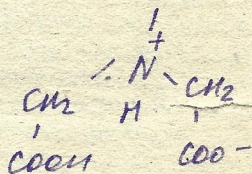 +
N
CH₂ H CH₂
COOH COO⁻